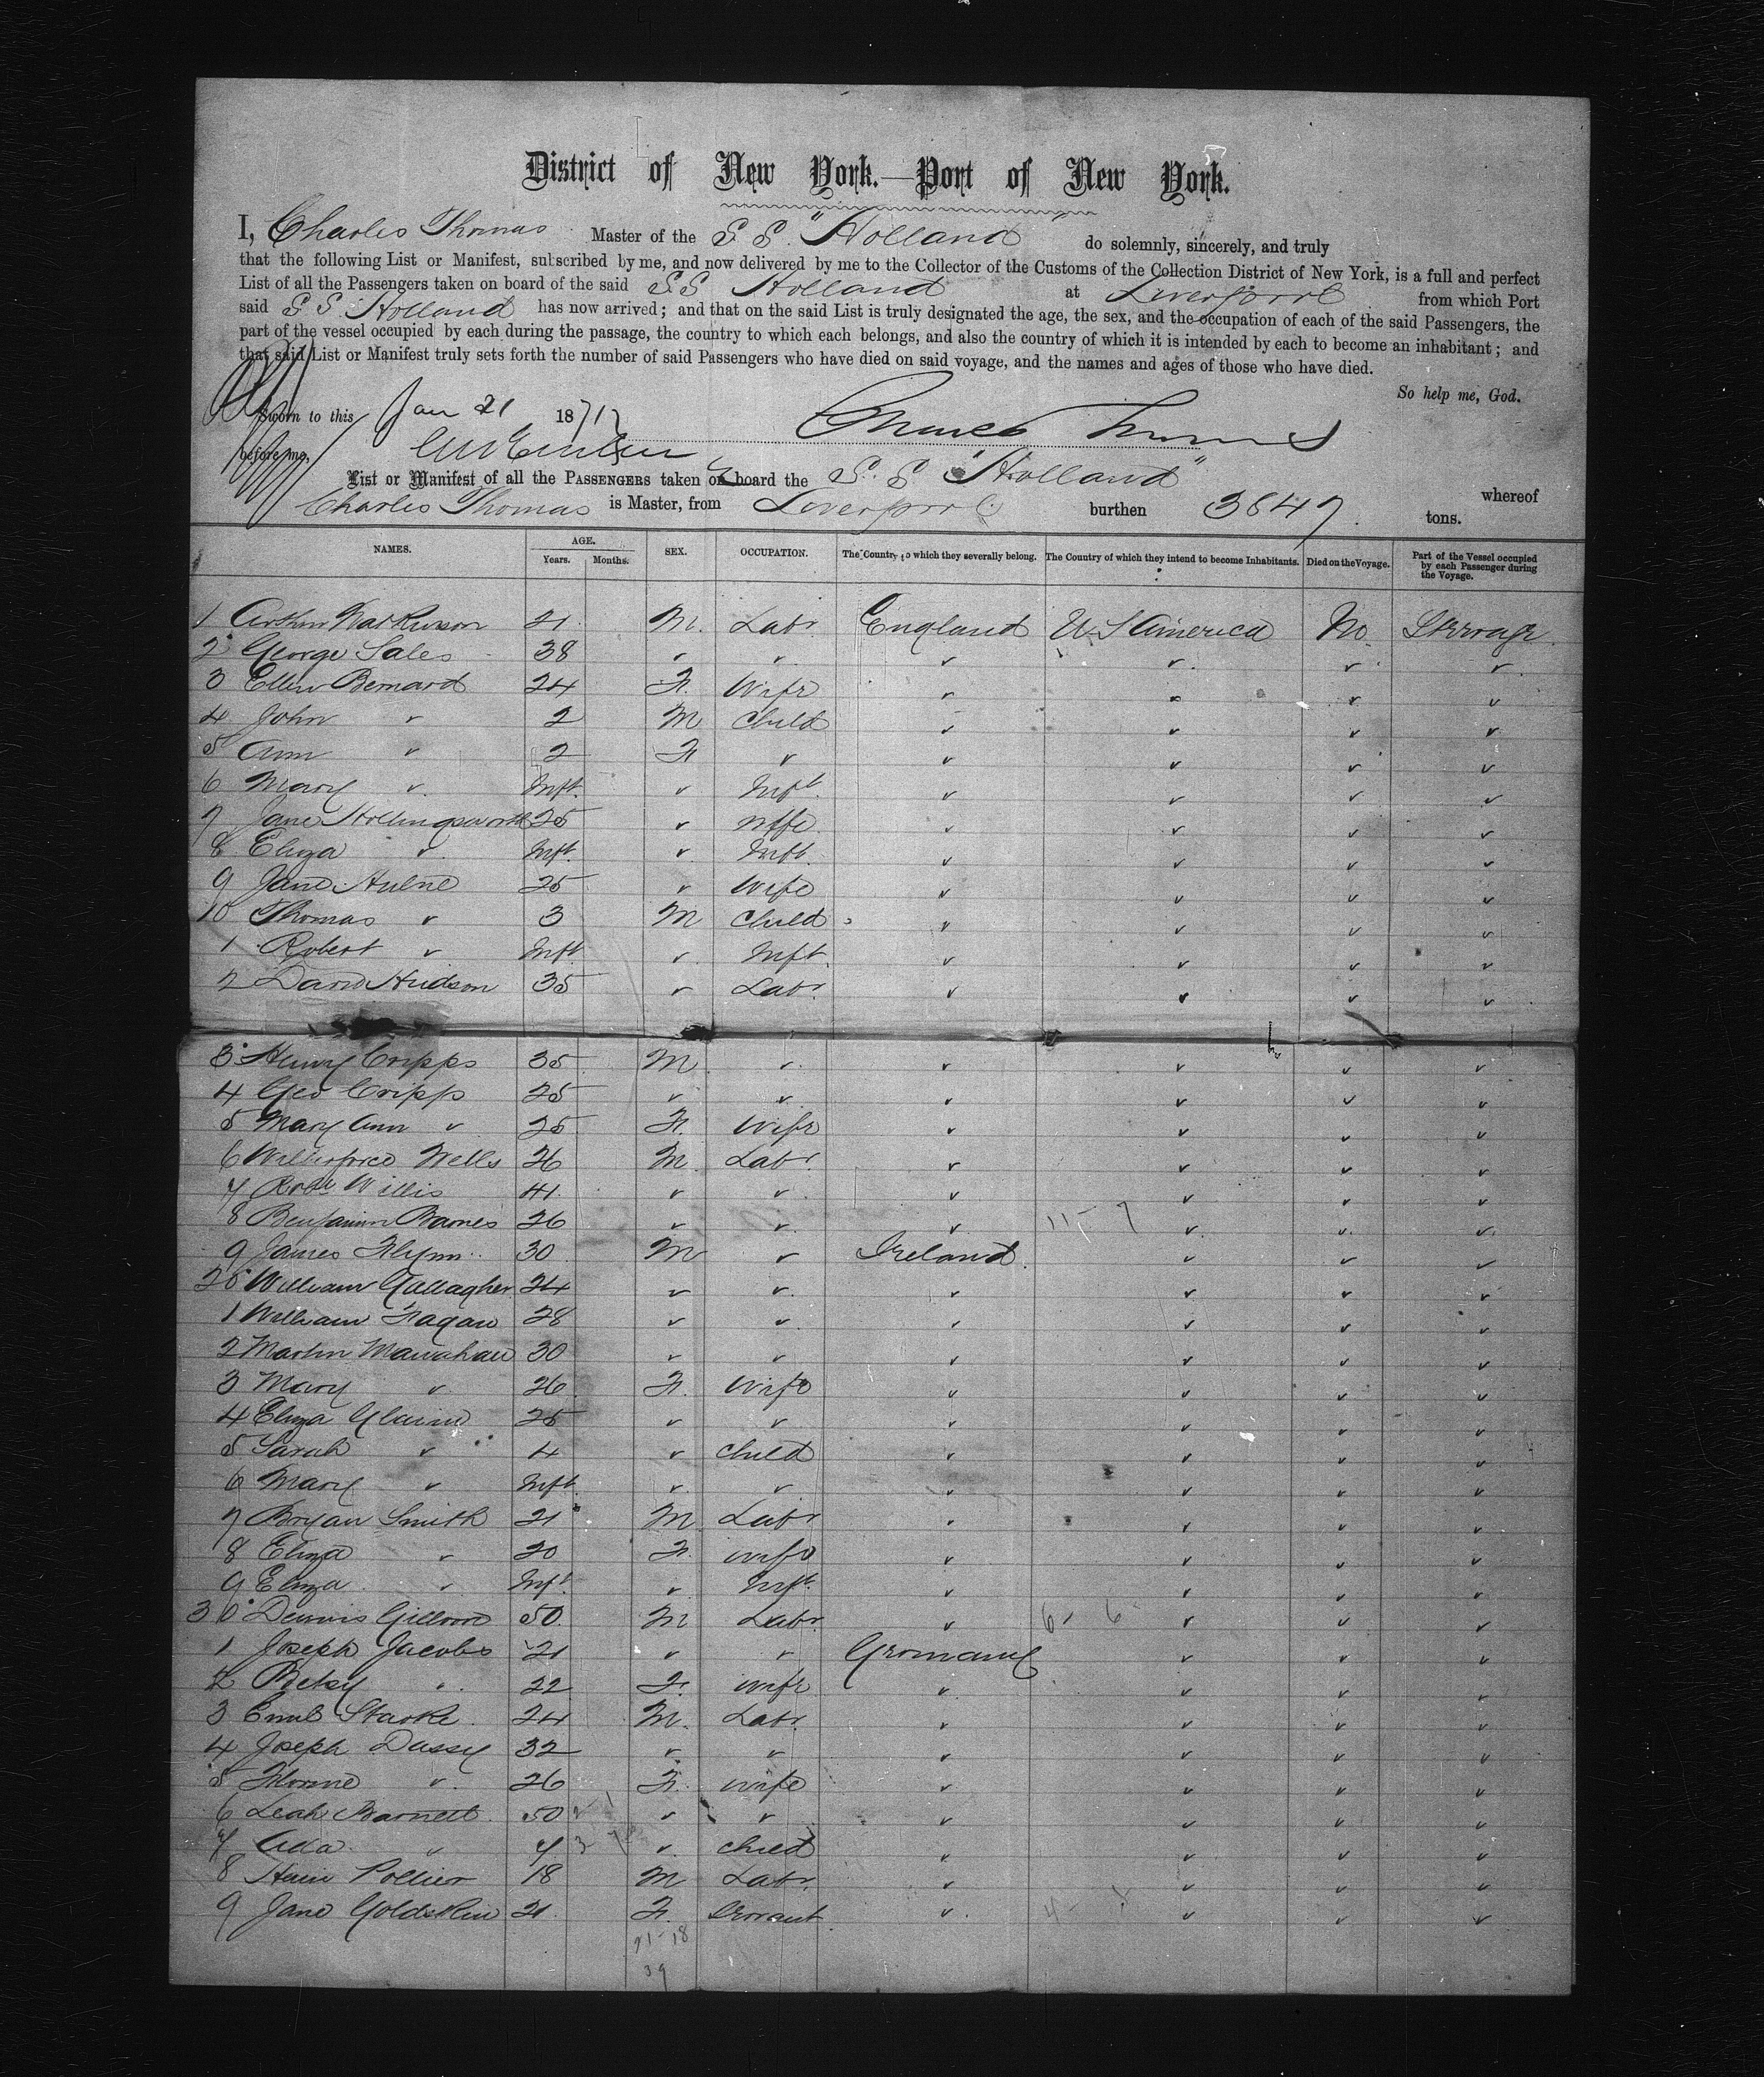 District of New York.—Port of New York.
I, Charles Thomas Master of the S. S. "Holland" do solemnly, sincerely, and truly
that the following List or Manifest, subscribed by me, and now delivered by me to the Collector of the Customs of the Collection District of New York, is a full and perfect
List of all the Passengers taken on board of the said SS Holland at Liverpool from which Port
said S S Holland has now arrived; and that on the said List is truly designated the age, the sex, and the occupation of each of the said Passengers, the
part of the vessel occupied by each during the passage, the country to which each belongs, and also the country of which it is intended by each to become an inhabitant; and
that said List or Manifest truly sets forth the number of said Passengers who have died on said voyage, and the names and ages of those who have died.
So help me, God.
Sworn to this Jan 21 1871 Charles Thomas
before me,
List or Manifest of all the PASSENGERS taken on board the S. S "Holland" whereof
Charles Thomas is Master, from Liverpool burthen 3647 tons.
NAMES. AGE. Years. Months. SEX. OCCUPATION. The Country to which they severally belong. The Country of which they intend to become Inhabitants. Died on the Voyage. Part of the Vessel occupied by each Passenger during the Voyage.
1 Arthur Watkinson 21 M. Labr England U S America No Steerage
2 George Sales 38 " " " " " "
3 Ellen Bernard 24 F. Wife " " " "
4 John " 2 M Child " " " "
5 Ann " 2 F " " " " "
6 Mary " Inft. " Inft. " " " "
7 Jane Hollingsworth 25 " Wife " " " "
8 Eliza " Inft. " Inft. " " " "
9 Jane Hulne 25 " Wife " " " "
10 Thomas " 3 M Child " " " "
1 Robert " Inft " Inft. " " " "
2 David Hudson 35 " Labr. " " " "
3 Henry Cripps 35 M " " " " "
4 Geo Cripps 25 " " " " " "
5 Mary Ann " 25 F. Wife " " " "
6 Wilberforce Wells 26 M. Labr. " " " "
7 Robt Willis 41 " " " " " "
8 Benjamin Barnes 26 " " " 11 - 7 " " "
9 James Flynn 30 M " Ireland " " "
20 William Gallagher 24 " " " " " "
1 William Fagan 28 " " " " " "
2 Martin Manahan 30 " " " " " "
3 Mary " 26 F. Wife " " " "
4 Eliza Glaind 25 " " " " " "
5 Sarah " 4 " Child " " " "
6 Mary " Inft. " " " " " "
7 Bryan Smith 21 M Labr " " " "
8 Eliza " 20 F. wife " " " "
9 Eliza " Inft. " Inft. " " " "
30 Dennis Gilloon 50 M Labr. " 6 - 6 " " "
1 Joseph Jacobs 21 " " Germany " " "
2 Betsy " 22 F. wife " " " "
3 Emil Starke 24 M. Labr " " " "
4 Joseph Dassy 32 " " " " " "
5 " 26 F. wife " " " "
6 Leah Barnett 50 " " " " " "
7 Ada " 7 " child " " " "
8 Pollier 18 M Labr. " " " "
9 Jane Goldsklin 21 F. Servant " 4 - " " "
21-18
39